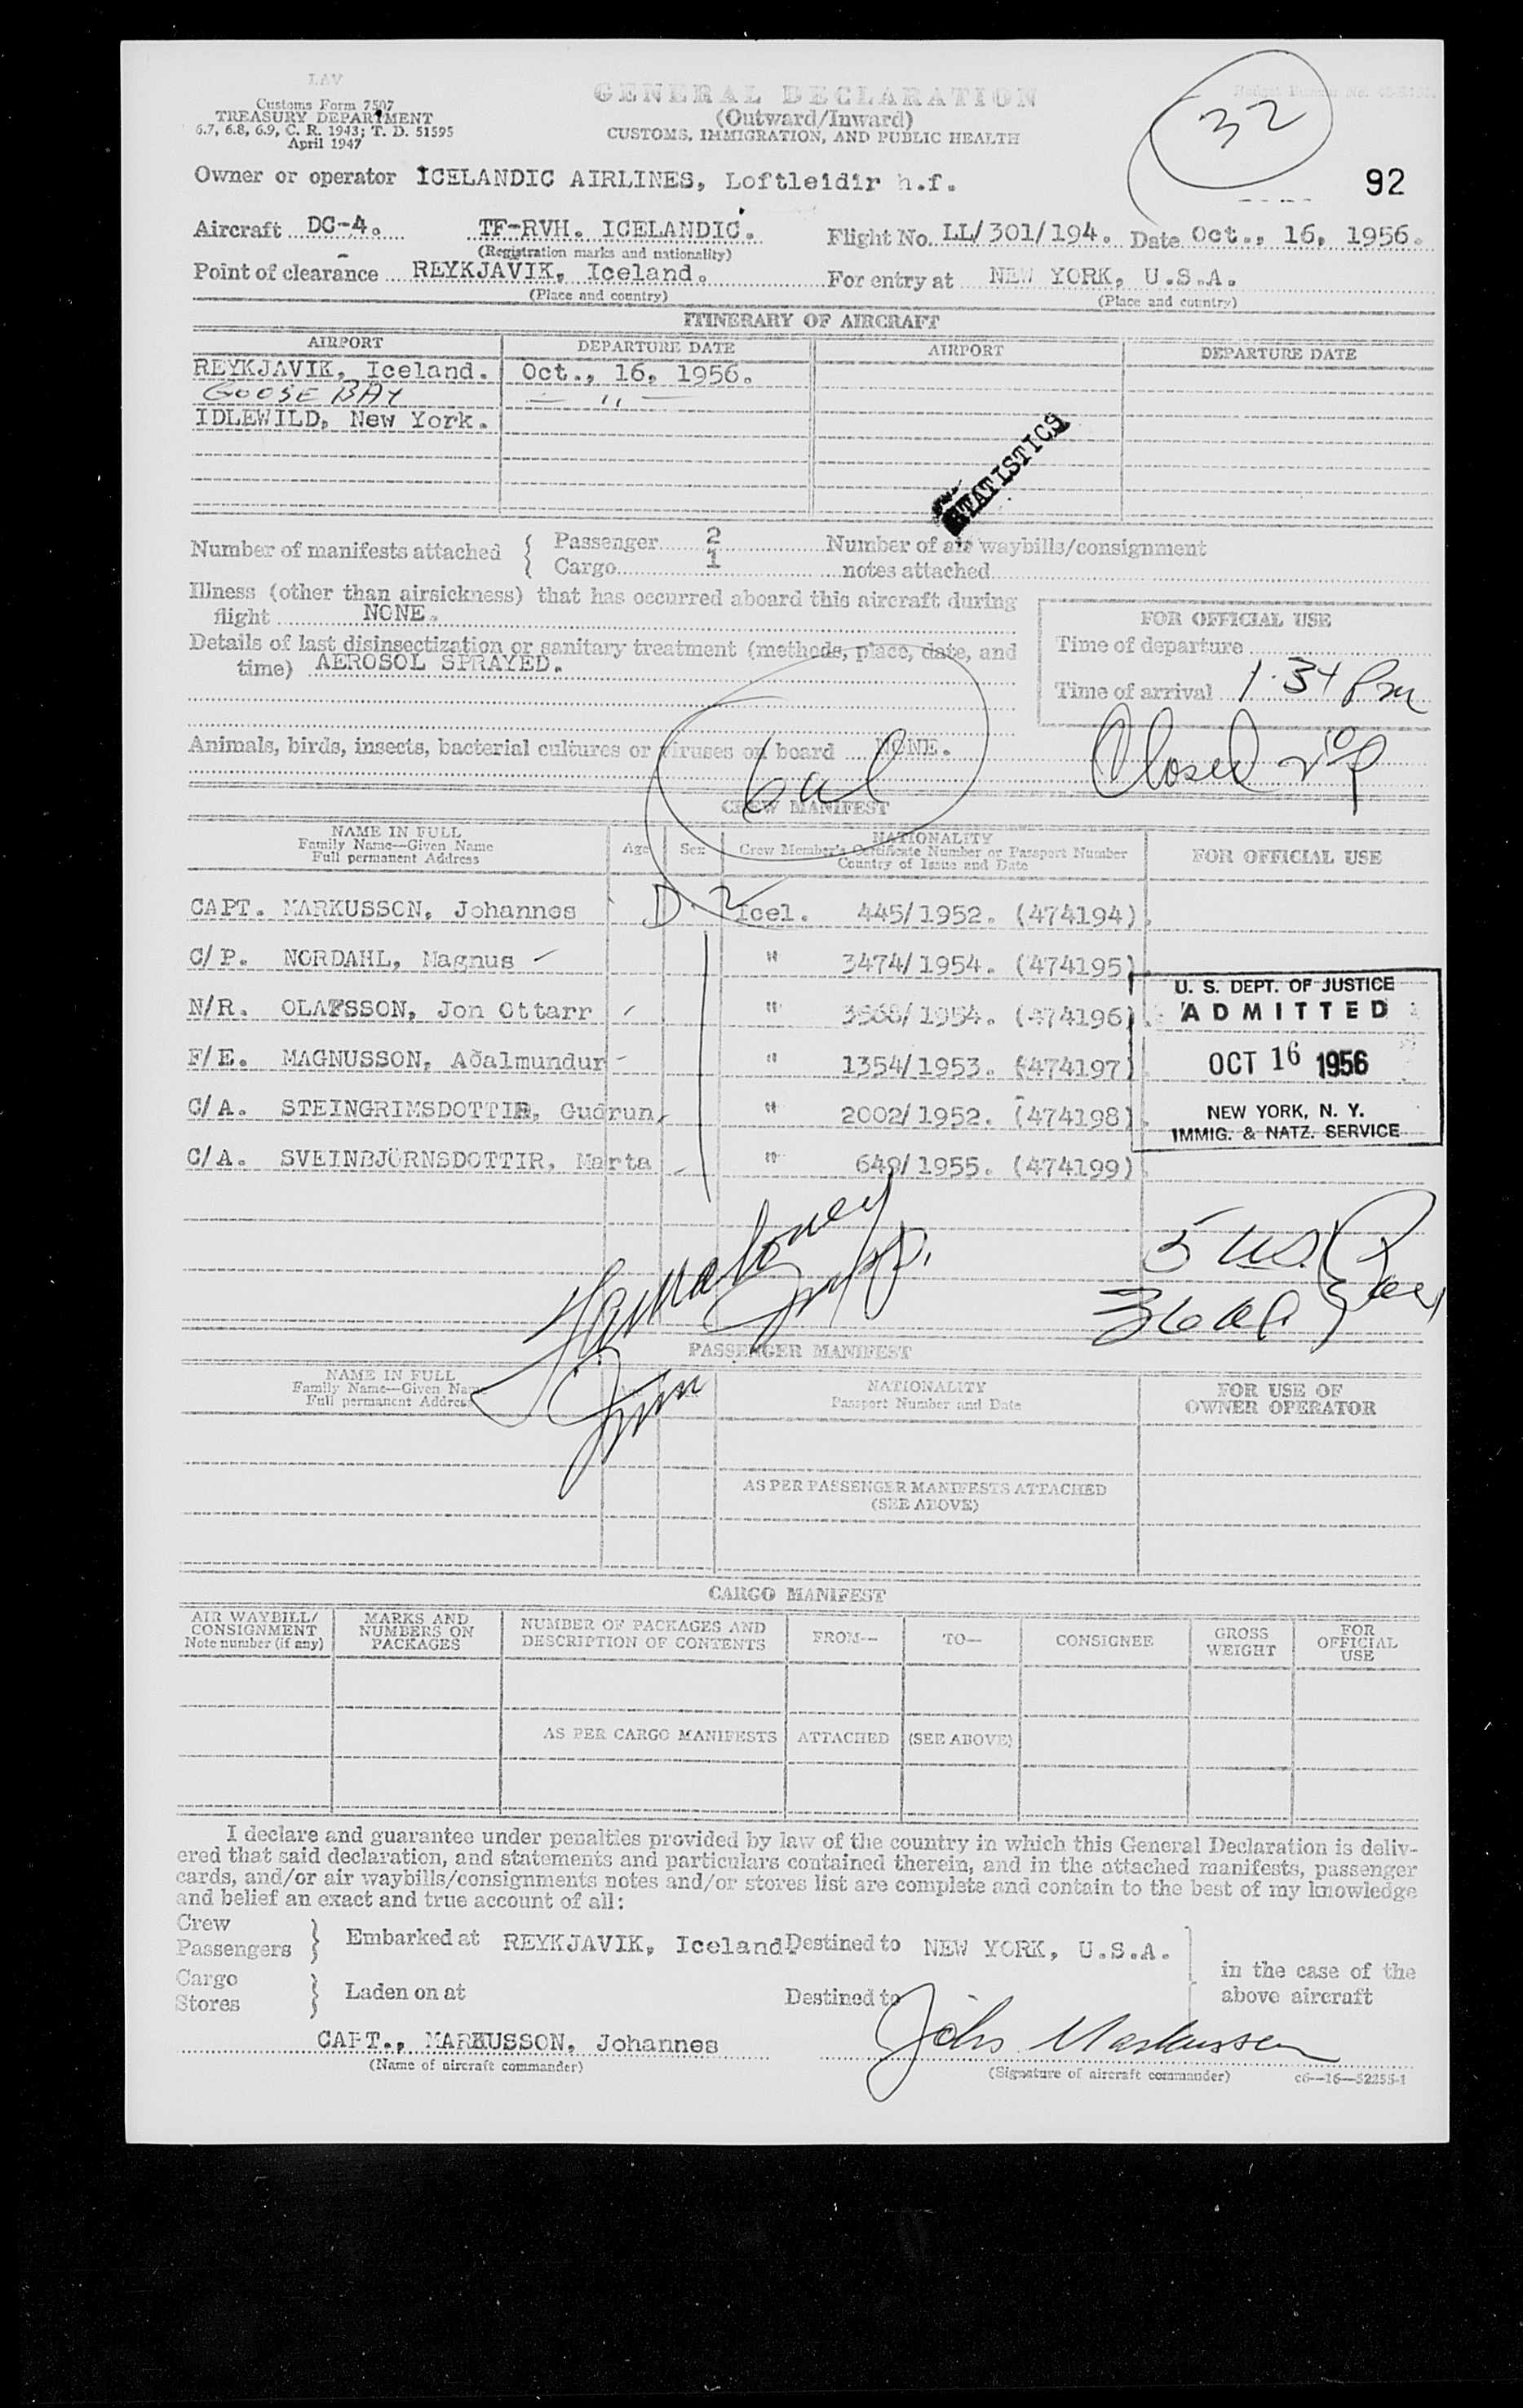 LAV
Customs Form 7507
TREASURY DEPARTMENT
6.7, 6.8, 6.9, C. R. 1943; T. D. 51595
April 1947
GENERAL DECLARATION
(Outward/Inward)
CUSTOMS, IMMIGRATION, AND PUBLIC HEALTH
32
92
Owner or operator ICELANDIC AIRLINES, Loftleidir h.f.
Aircraft DC-4. TF-RVH. ICELANDIC. Flight No. LL/301/194. Date Oct., 16, 1956.
(Registration marks and nationality)
Point of clearance REYKJAVIK, Iceland. For entry at NEW YORK, U.S.A.
(Place and country) (Place and country)
ITINERARY OF AIRCRAFT
AIRPORT DEPARTURE DATE AIRPORT DEPARTURE DATE
REYKJAVIK, Iceland. Oct., 16, 1956.
GOOSE BAY — " —
IDLEWILD, New York.
STATISTICS
Number of manifests attached { Passenger 2 Number of air waybills/consignment
Cargo 1 notes attached
Illness (other than airsickness) that has occurred aboard this aircraft during
flight NONE.
Details of last disinsectization or sanitary treatment (methods, place, date, and
time) AEROSOL SPRAYED.
FOR OFFICIAL USE
Time of departure
Time of arrival 1.34 Pm
Animals, birds, insects, bacterial cultures or viruses on board NONE.
Closed
CREW MANIFEST
NAME IN FULL
Family Name—Given Name
Full permanent Address
Age Sex
NATIONALITY
Crew Member's Certificate Number or Passport Number
Country of Issue and Date
FOR OFFICIAL USE
CAPT. MARKUSSON, Johannes D. 2 Icel. 445/1952. (474194).
C/P. NORDAHL, Magnus " 3474/1954. (474195)
N/R. OLAFSSON, Jon Ottarr " /1954. (474196)
F/E. MAGNUSSON, Aðalmundur " 1354/1953. (474197)
C/A. STEINGRIMSDOTTIR, Gudrun, " 2002/1952. (474198)
C/A. SVEINBJÖRNSDOTTIR, Marta " 649/1955. (474199)
U. S. DEPT. OF JUSTICE
ADMITTED
OCT 16 1956
NEW YORK, N. Y.
IMMIG. & NATZ. SERVICE
PASSENGER MANIFEST
NAME IN FULL
Family Name—Given Name
Full permanent Address
NATIONALITY
Passport Number and Date
FOR USE OF
OWNER OPERATOR
AS PER PASSENGER MANIFESTS ATTACHED
(SEE ABOVE)
CARGO MANIFEST
AIR WAYBILL/
CONSIGNMENT
Note number (if any)
MARKS AND
NUMBERS ON
PACKAGES
NUMBER OF PACKAGES AND
DESCRIPTION OF CONTENTS
FROM—
TO—
CONSIGNEE
GROSS
WEIGHT
FOR
OFFICIAL
USE
AS PER CARGO MANIFESTS ATTACHED (SEE ABOVE)
I declare and guarantee under penalties provided by law of the country in which this General Declaration is deliv-
ered that said declaration, and statements and particulars contained therein, and in the attached manifests, passenger
cards, and/or air waybills/consignments notes and/or stores list are complete and contain to the best of my knowledge
and belief an exact and true account of all:
Crew
Passengers } Embarked at REYKJAVIK, Iceland Destined to NEW YORK, U.S.A.
Cargo
Stores } Laden on at Destined to
in the case of the
above aircraft
CAPT., MARKUSSON, Johannes Johs Markusson
(Name of aircraft commander) (Signature of aircraft commander) c6—16—52255-1